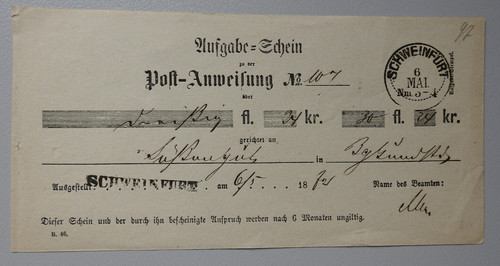 92
Aufgabe=Schein
zu der
Post-Anweisung № 107
über
Dreißig fl. 24 kr. 30 fl. 24 kr.
gerichtet an
in
Ausgestellt: SCHWEINFURT. am 6/5 1872 Name des Beamten:
Dieser Schein und der durch ihn bescheinigte Anspruch werden nach 6 Monaten ungiltig.
SCHWEINFURT
6
MAI.
Nm. 3-4